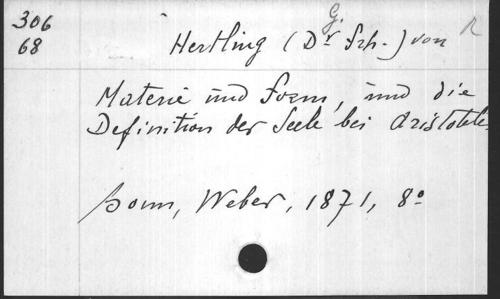 306
68
Hertling (Dr G. Frh.) von
R
Materie und Form, und die
Definition der Seele bei Aristoteles
Bonn, Weber, 1871, 8°